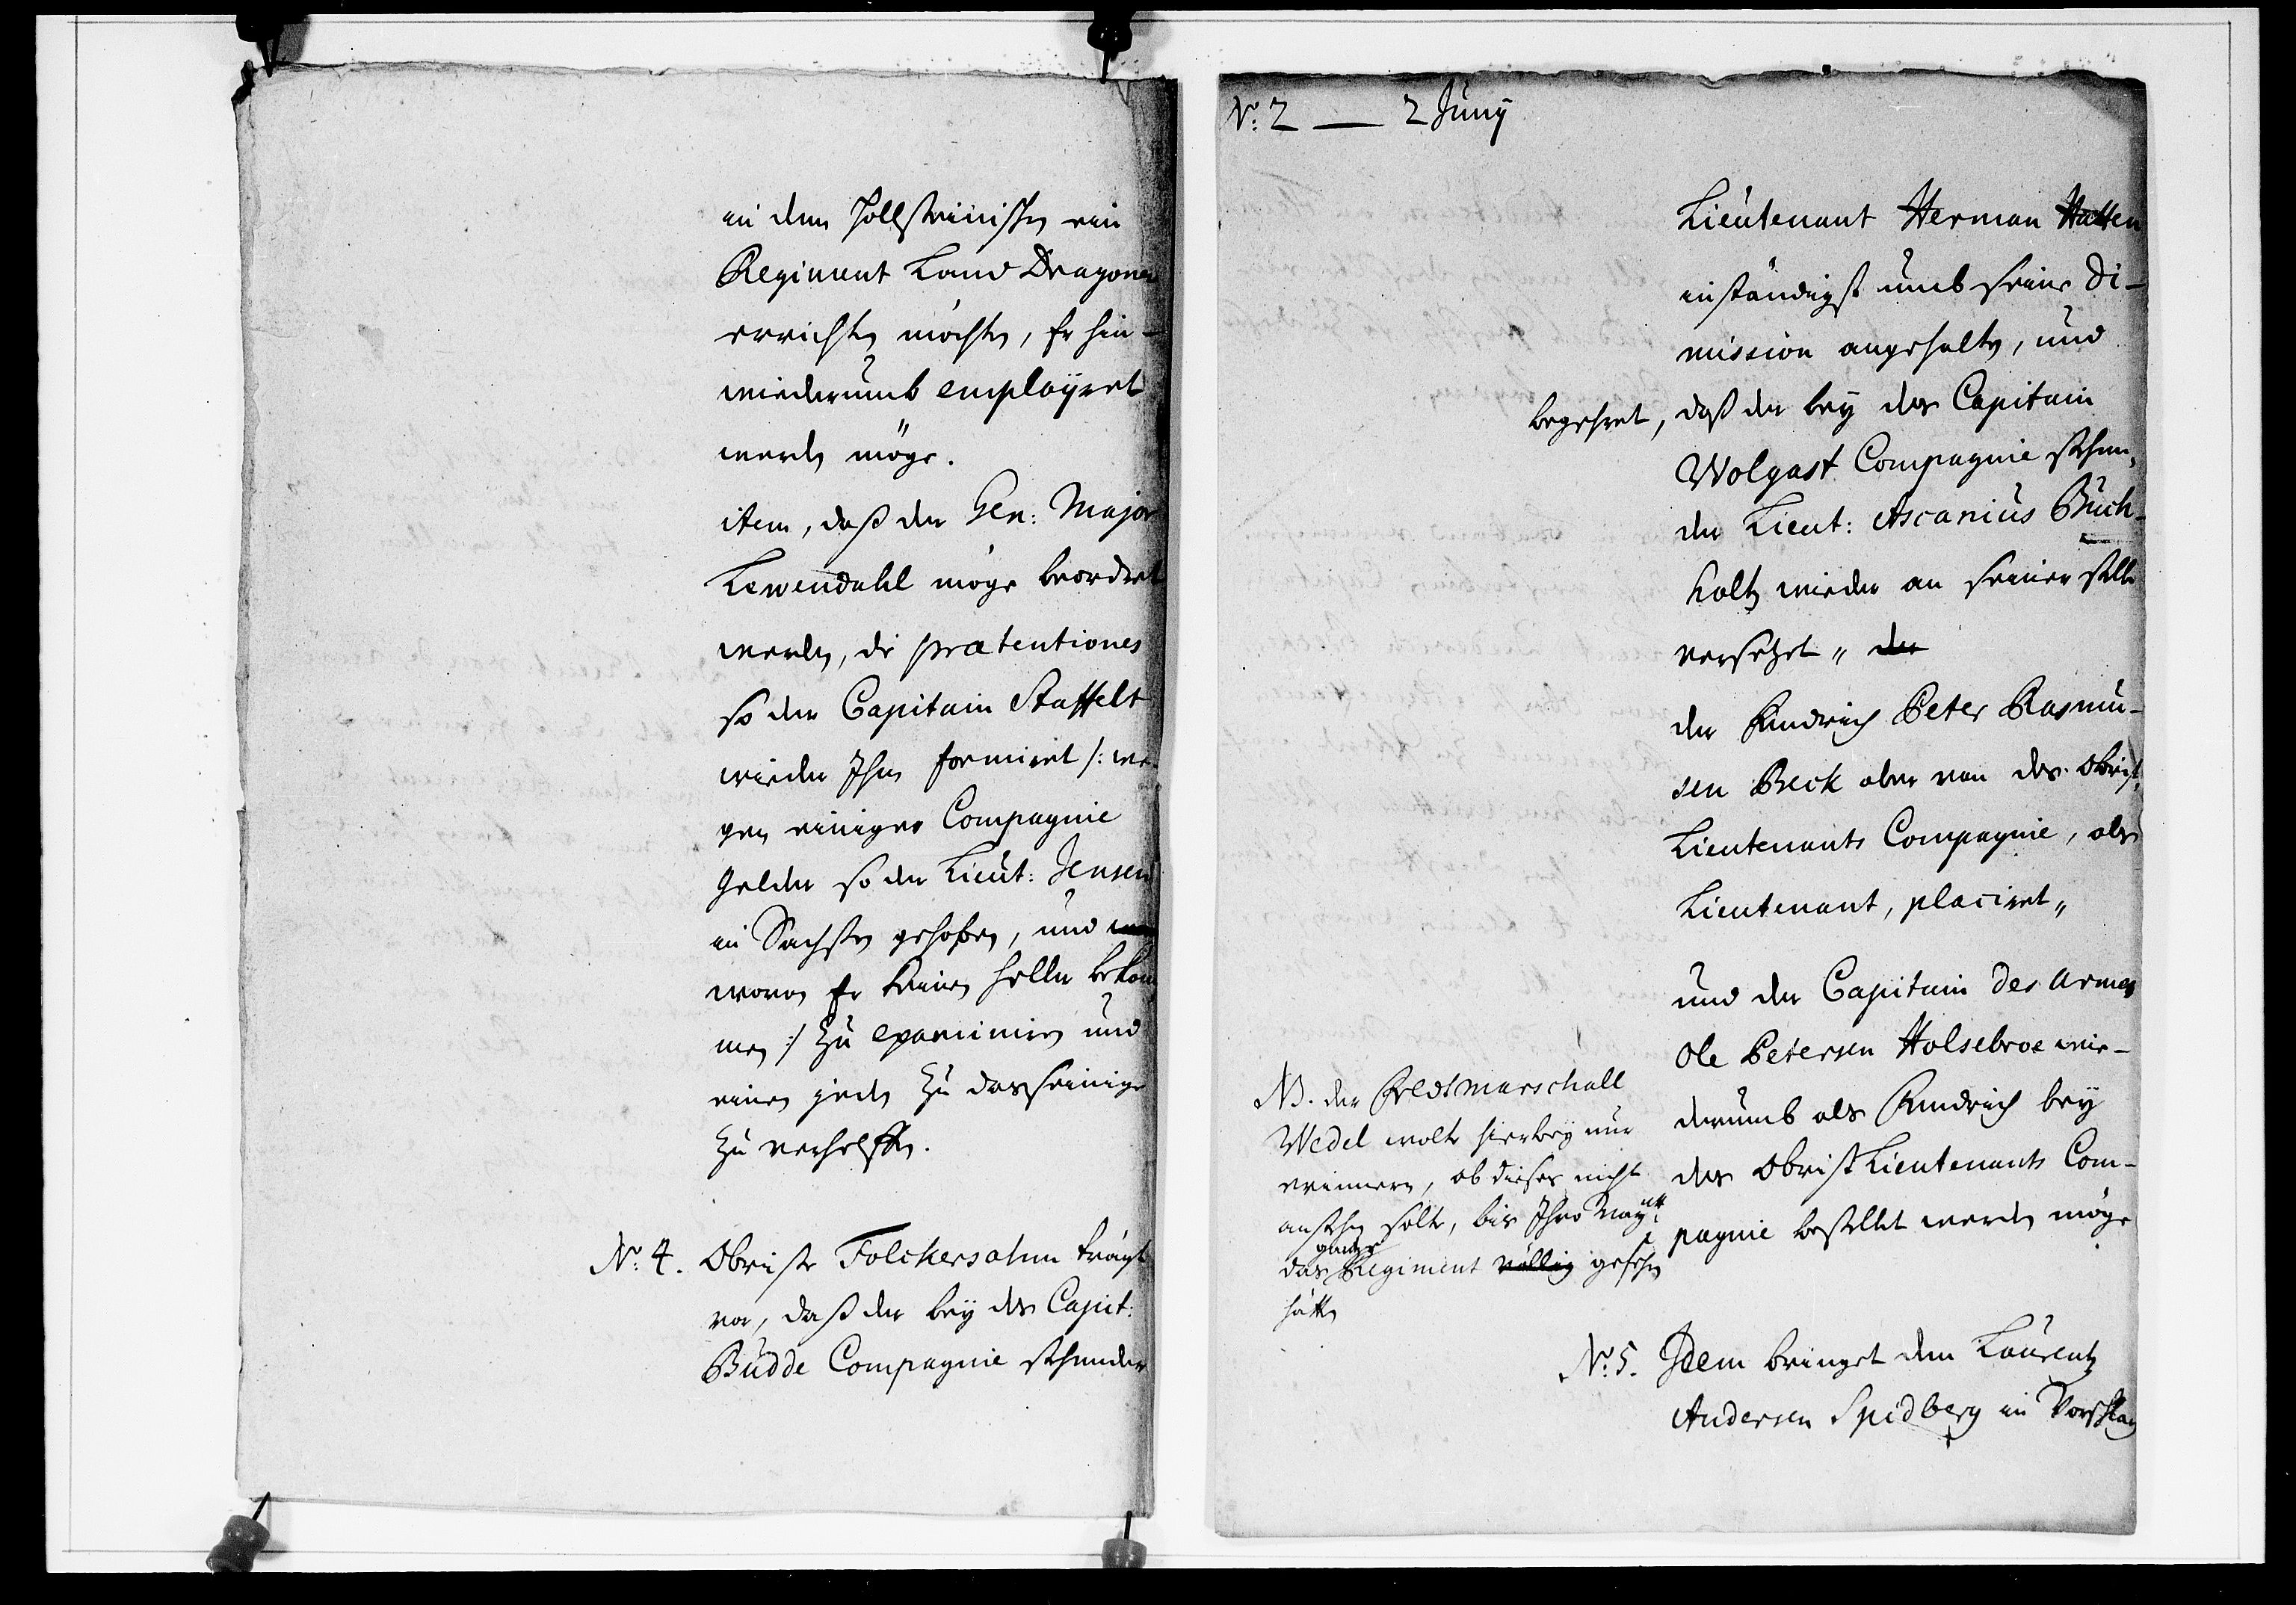 in dem Hollsteinischen ein
Regiment Land Dragoner
errichten möchten, Er hin-
wiederumb employret
werden möge.
item, daß der Gen: Major
Lewendahl möge beordret
werden, die prætentiones
so der Capitain Staffelt
wieder Ihm formiret /: we-
gen einiger Compagnie
gelder so der Lieut: Jensen
in Sachsen gehoben, und
wovon Er keinen heller bekom
men :/ zu examiniren und
einen jeden zu das seinige
zu verhelffen.
No: 4. Obriste Folckersahm trägt
vor, daß der bey des Capit:
Budde Compagnie stehender
No: 2 — 2 Juny
Lieutenant Herman Hatten
inständigst umb seine Di-
mission angehalten, und
begehret, daß der bey des Capitain
Wolgast Compagnie stehen-
der Lieut: Ascanius Buch-
holtz wieder an seiner stelle
versetzet „ der
der Fendrich Peter Rasmu-
sen Beck aber von des Obrist
Lieutenants Compagnie, als
Lieutenant, placiret „
und der Capitain des Armes
Ole Petersen Holsebroe wie-
derumb als Fendrich bey
des Obrist Lieutenants Com-
pagnie bestellet werden möge
NB. der Feldtmarschall
Wedel wolte hierbey nur
erinnern, ob dieses nicht
anstehen solte, bis Ihro Maytt:
gantze
das Regiment völlig gesehen
hätten
No: 5. Idem bringet den Laurentz
Andersen Spidberg in Vorschlag